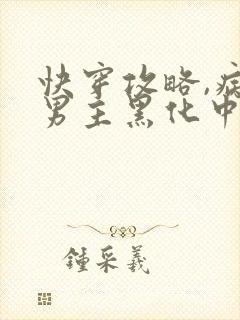 快穿攻略,病
男主黑化中
锺采羲